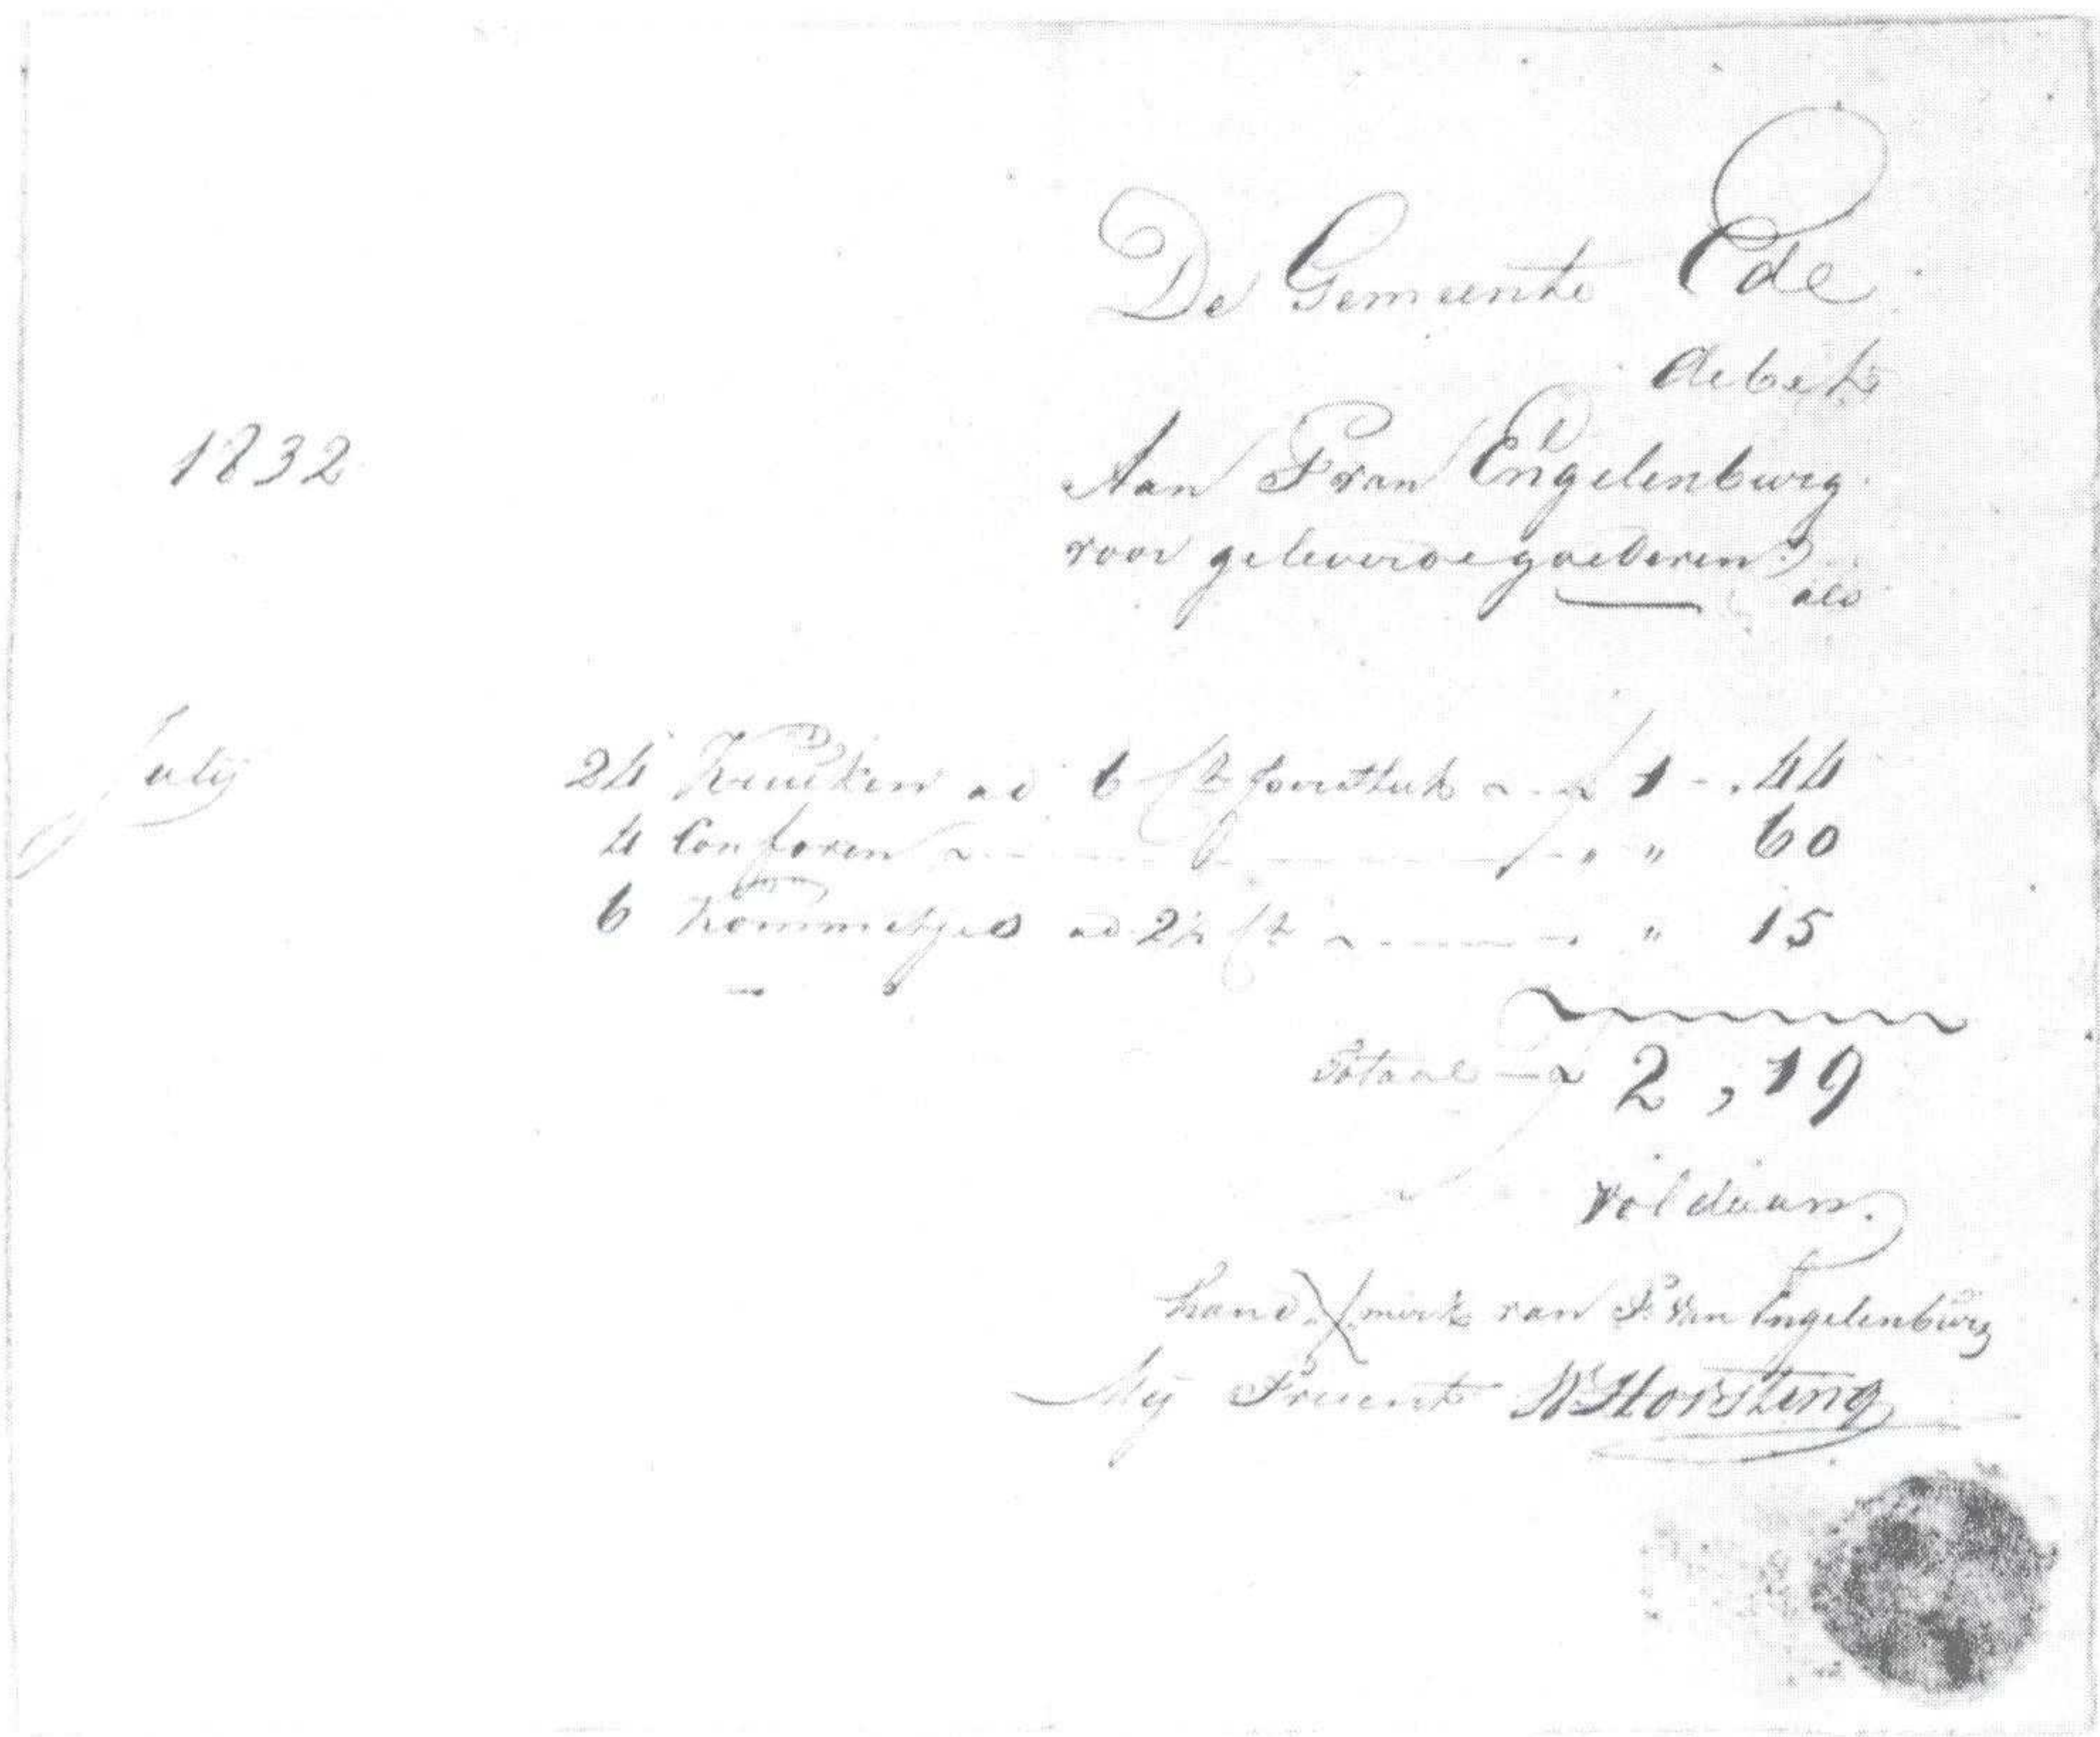 De Gemeente Ede
debet
1832
Aan P van Engelenburg
voor geleverde goederen
als
Julij 24 Kruiken ad 6 Ct f 1 - . 44
4 Conforen " " 60
6 Kommetjes ad 2½ Ct " 15
Totaal 2,19
Voldaan.
hand X merk van P. van Engelenburg
Mij Present W Horsting